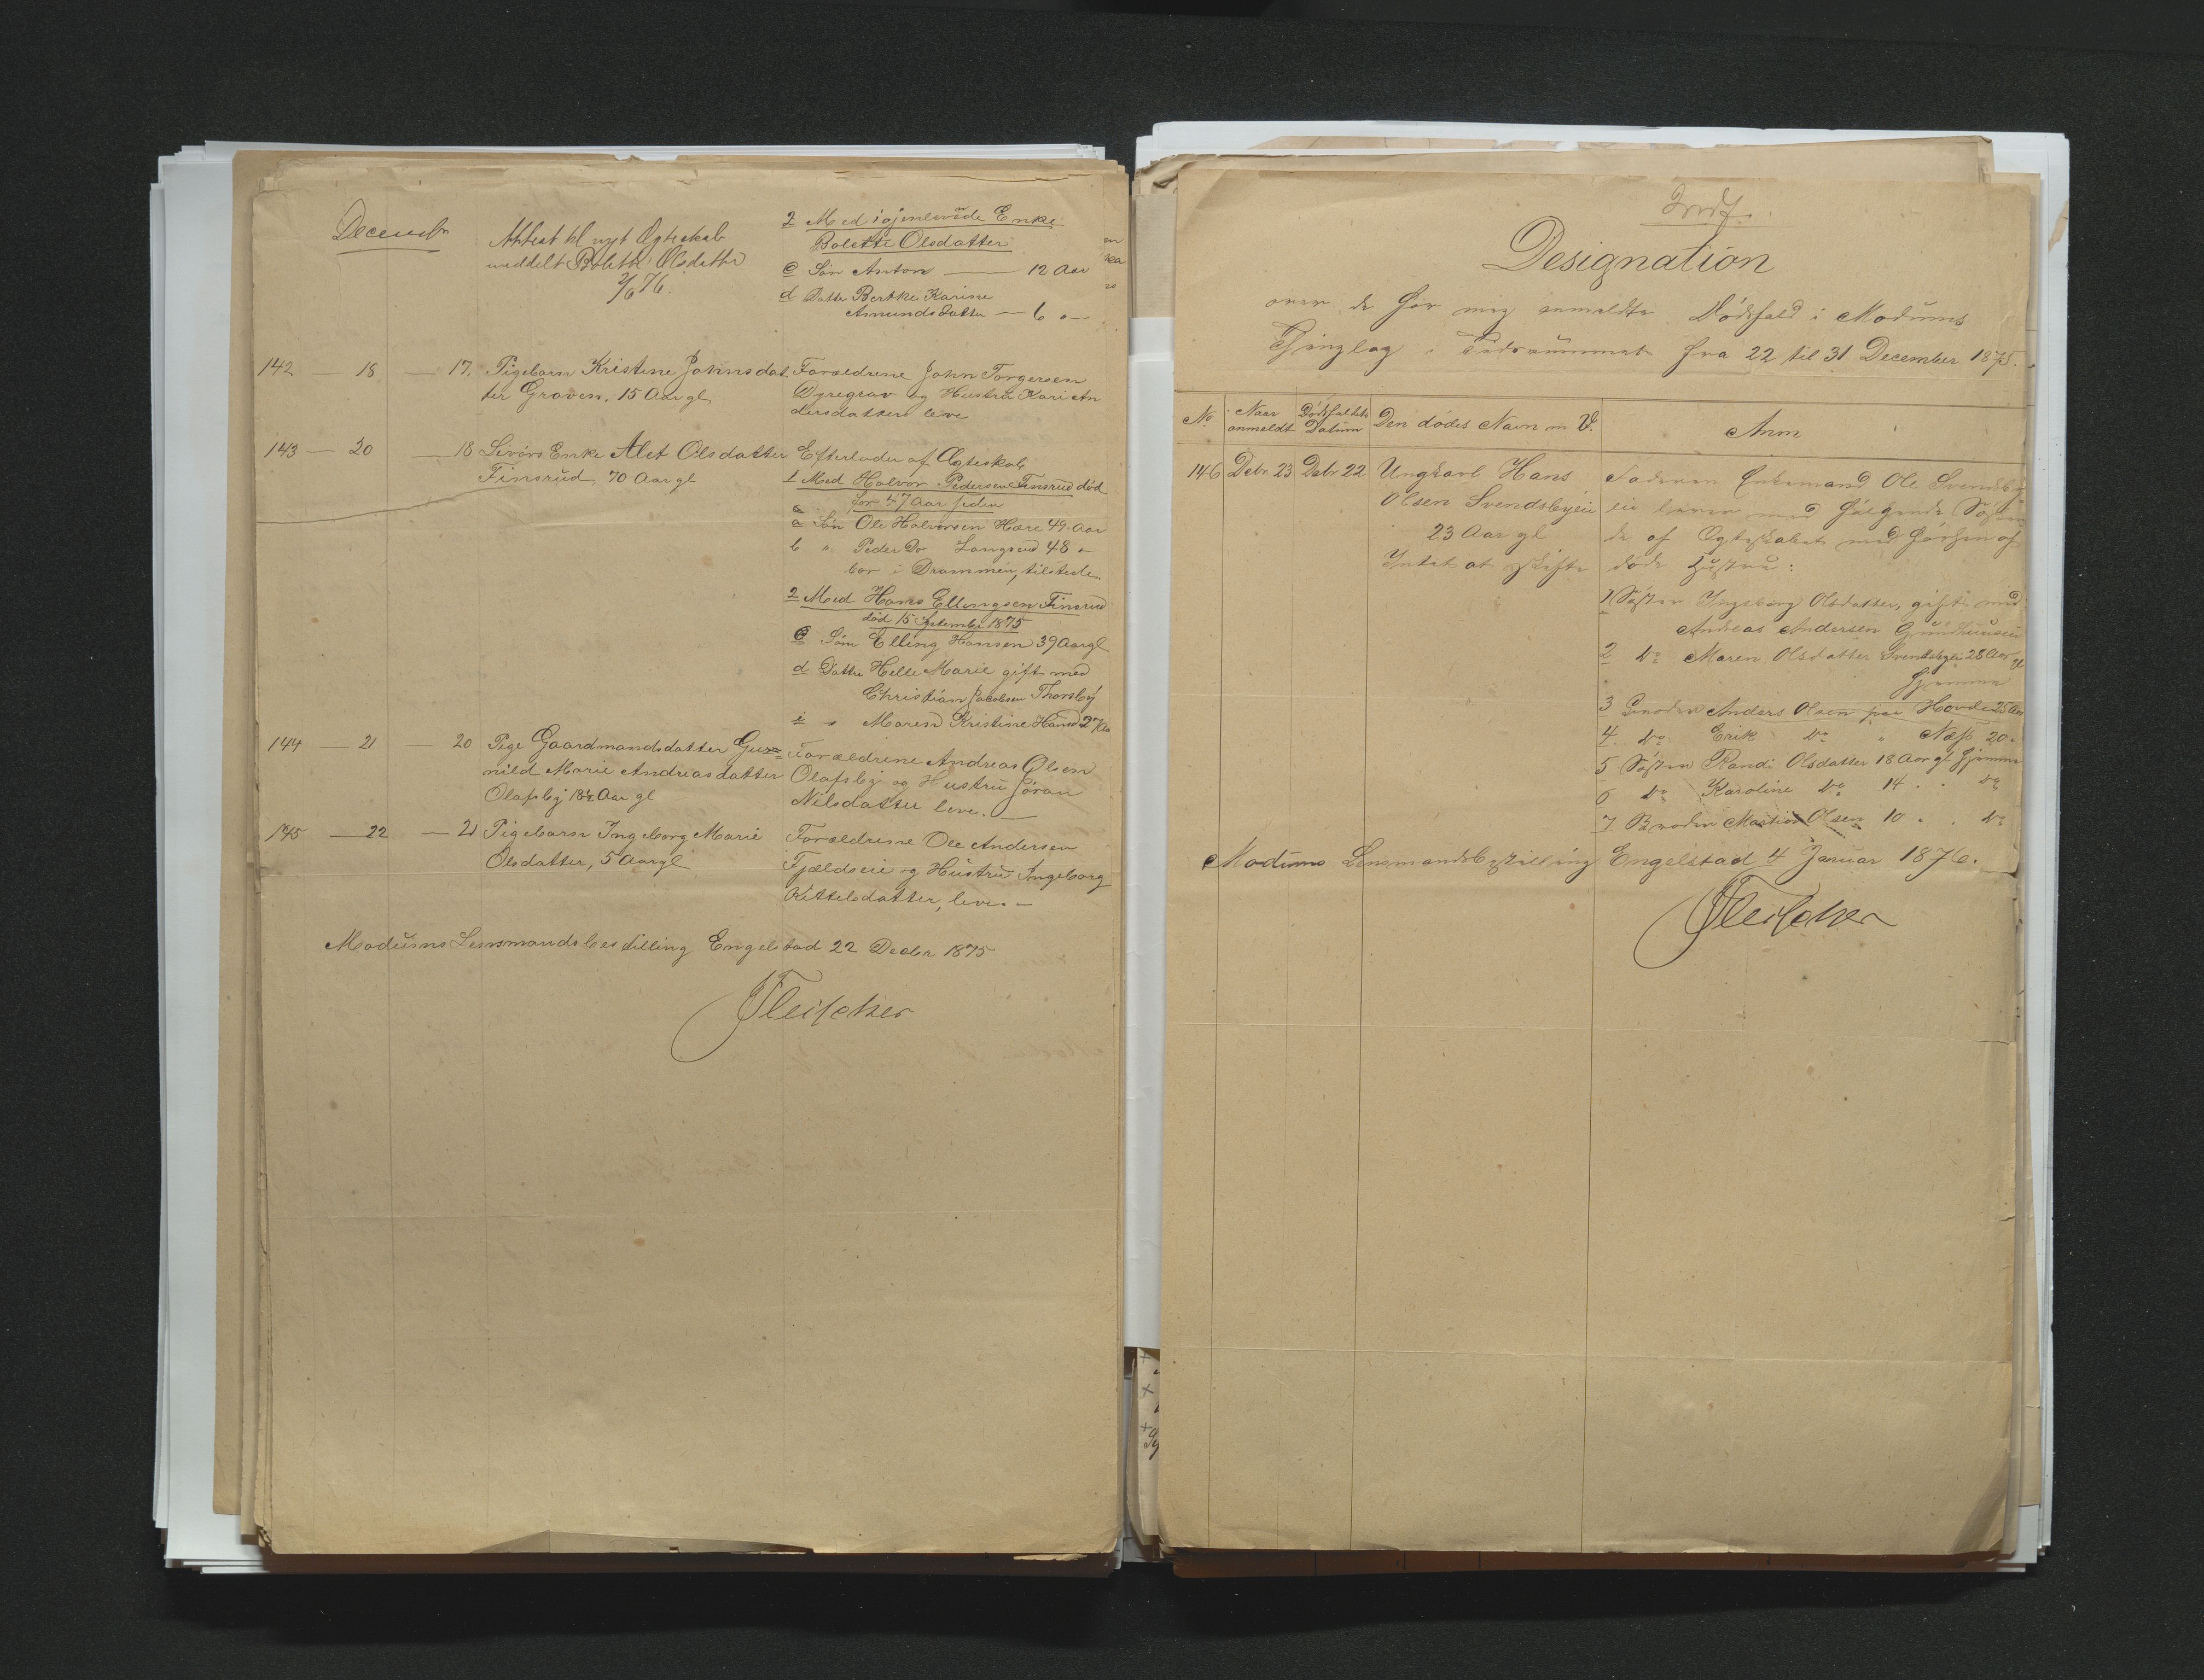 Decembr
Attest til nyt Ægteskab
meddelt Bolette Olsdatter
2/6 76.
2 Med igjenlevende Enke
Bolette Olsdatter
c Søn Anton — 12 Aar
d Datter Berthe Karine
Amundsdatter — 6 "
142 — 18 — 17. Pigebarn Kristine Johnsdat
ter Graven, 15 Aar gl
Forældrene John Torgersen
Dyregrav og Hustru Kari An
dersdatter leve
143 — 20 — 18 Livørs Enke Alet Olsdatter
Finsrud, 70 Aar gl
Efterlader af Ægteskab
1 Med Halvor Pedersen Finsrud død
for 47 Aar siden
a Søn Ole Halvorsen Hære 49 Aar
b " Peder Do Langrud 48 "
bor i Drammen, tilstede.
2 Med Hans Ellingsen Finsrud
død 15 September 1875
c Søn Elling Hansen 39 Aar gl
d Datter Helle Marie gift med
Christian Jacobsen Thorsby
" Maren Kristine Hansd 27 Aar
144 — 21 — 20 Pige Gaardmandsdatter Gun=
nild Marie Andreasdatter
Olafsby 18½ Aar gl
Forældrene Andreas Olsen
Olafsby og Hustru Jøran
Nilsdatter leve. —
145 — 22 — 21 Pigebarn Ingeborg Marie
Olsdatter, 5 Aar gl
Forældrene Ole Andersen
Fjældseie og Hustru Ingeborg
Kittelsdatter, leve. —
Modums Lensmandsbestilling Engelstad 22 Decbr 1875
Fleischer
Designation
over de for mig anmeldte Dødsfald i Modums
Thinglag i Tidsrummet fra 22 til 31 December 1875.
No
Naar
anmeldt
Dødsfaldets
Datum
Den dødes Navn m V.
Anm
146 Debr. 23 Debr 22 Ungkarl Hans
Olsen Svendsbyeie
23 Aar gl
Intet at skifte
Faderen Enkemand Ole Svendsby
eie lever med følgende Søsken
de af Ægteskabet med hans af
døde Hustru:
1 Søster Ingeborg Olsdatter, gift med
Andreas Andersen Gundhuuseie
2 Do Maren Olsdatter Svendsbyeie 28 Aar gl
hjemme
3 Broder Anders Olsen paa Hovde 25 Aar
4. Do Erik Do " Næss 20 "
5 Søster Randi Olsdatter 18 Aar gl hjemme
6 Do Karoline Do 14 " " Do
7 Broder Martin Olsen 10 " " Do
Modums Lensmandsbestilling Engelstad 4 Januar 1876.
Fleischer